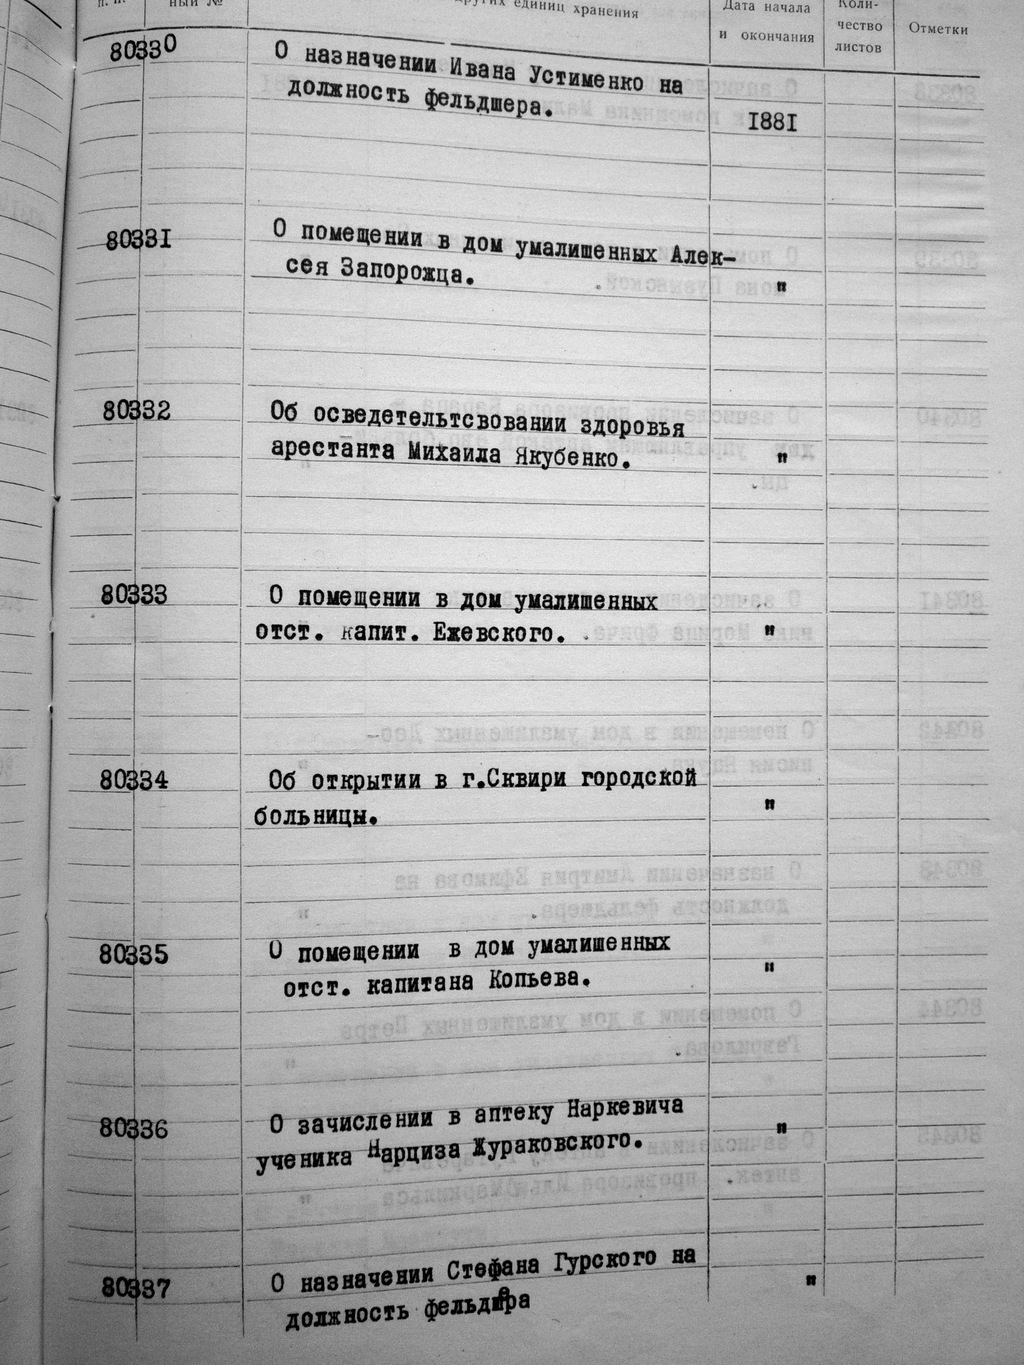 п.
ный №
других единиц хранения
Дата начала
и окончания
Коли-
чество
листов
Отметки
80330 О назначении Ивана Устименко на
должность фельдшера. 1881
80331 О помещении в дом умалишенных Алек-
сея Запорожца. "
80332 Об осведетельтсвовании здоровья
арестанта Михаила Якубенко. "
80333 О помещении в дом умалишенных
отст. капит. Ежевского. "
80334 Об открытии в г.Сквири городской
больницы. "
80335 О помещении в дом умалишенных
отст. капитана Копьева. "
80336 О зачислении в аптеку Наркевича "
ученика Нарциза Жураковского.
80337 О назначении Стефана Гурского на "
должность